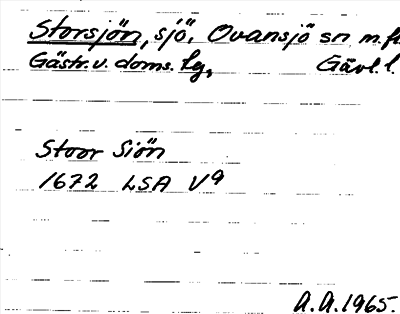 Storsjön, sjö, Ovansjö sn m.fl.
Gästr. v. doms. lg, Gävl. l.
Stoor Siön
1672 LSA V9
A.A. 1965.